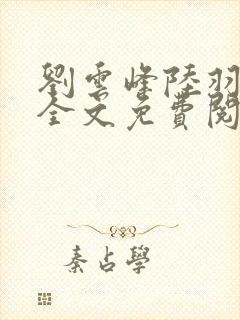 劉雲峰陸羽
全文免費閱
秦占學